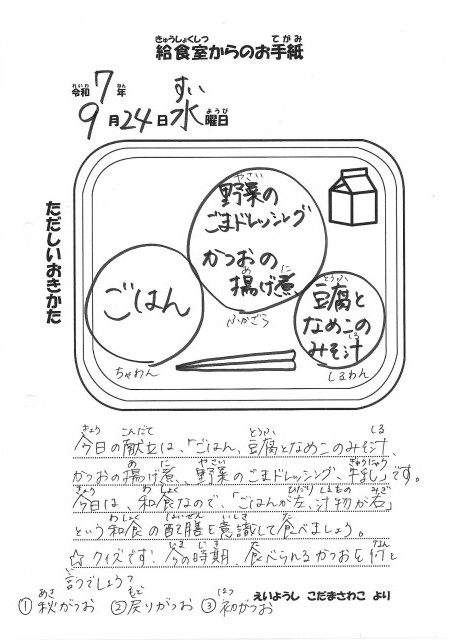 きゅうしょくしつ てがみ
給食室からのお手紙
れいわ ねん すい
令和7年
ようび
9月24日水曜日
ただしいおきかた
やさい
野菜の
ごまドレッシング
かつおの
あ に
揚げ煮
ごはん
とうふ
豆腐と
なめこの
しる
みそ汁
ふかざら
ちゃわん
しるわん
きょう こんだて とうふ しる
今日の献立は、「ごはん、豆腐となめこのみそ汁、
あ に やさい ぎゅうにゅう
かつおの揚げ煮、野菜のごまドレッシング、牛乳」です。
きょう わしょく ひだり しるもの みぎ
今日は、和食なので、「ごはんが左、汁物が右」
わしょく はいぜん いしき た
という和食の配膳を意識して食べましょう。
いま じき た なん
☆クイズです。今の時期、食べられるかつおを何と
い
言うでしょう?
あき もど はつ
①秋がつお ②戻りがつお ③初がつお
えいようし こだまさわこ より